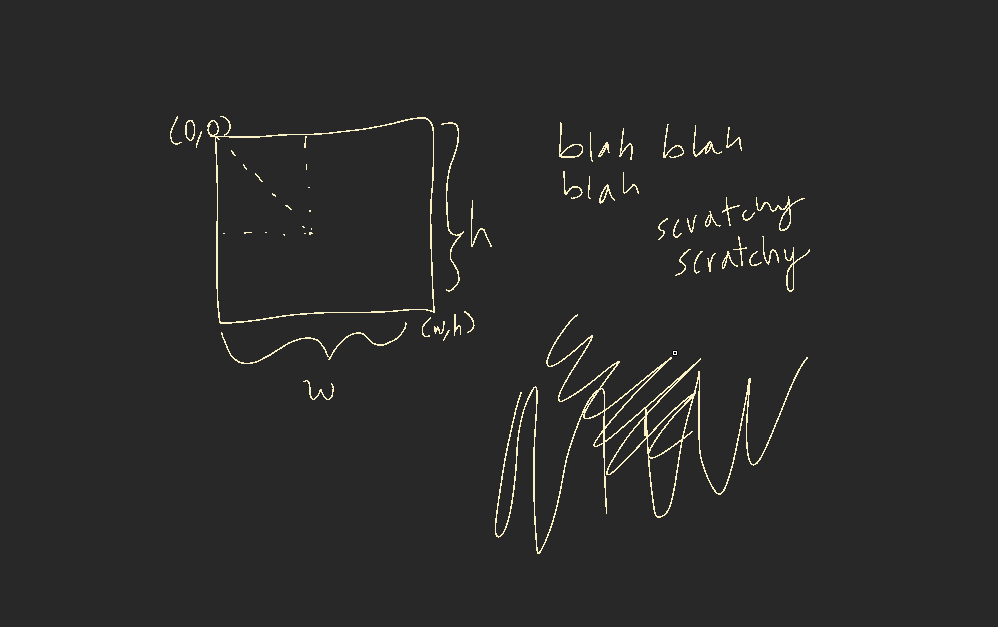 (0,0)
h
(w,h)
w
blah blah
blah
scratchy
scratchy